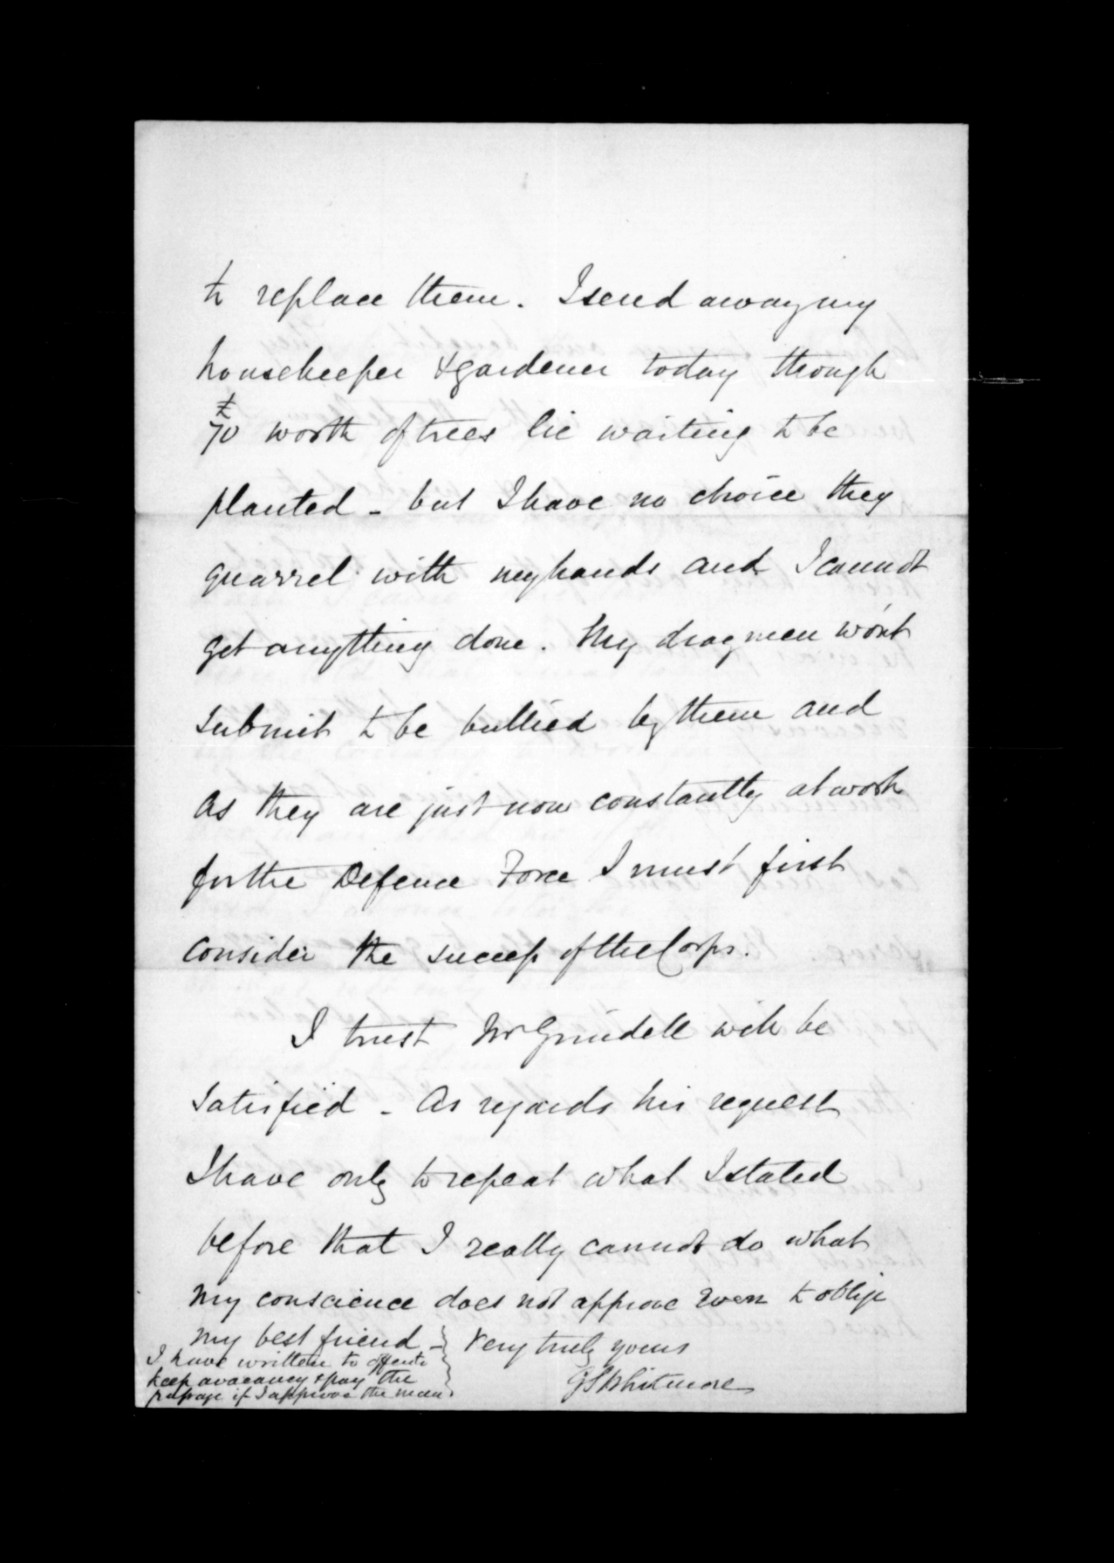 to replace them. I send away my
housekeeper & gardener today though
£70 worth of trees lie waiting to be
planted - but I have no choice they
quarrel with my hands and I cannot
get anything done. My dragmen wo'nt
submit to be bullied by them and
as they are just now constantly at work
for the Defence Force I must first
consider the success of the Corps.
I trust Mr Grindell will be
satisfied - As regards his request
I have only to repeat what I stated
before that I really cannot do what
my conscience does not approve even to oblige
my best friend - Very truly yours
GSWhitmore
I have written to
keep a vacancy & pay the
passage if I approve the man.